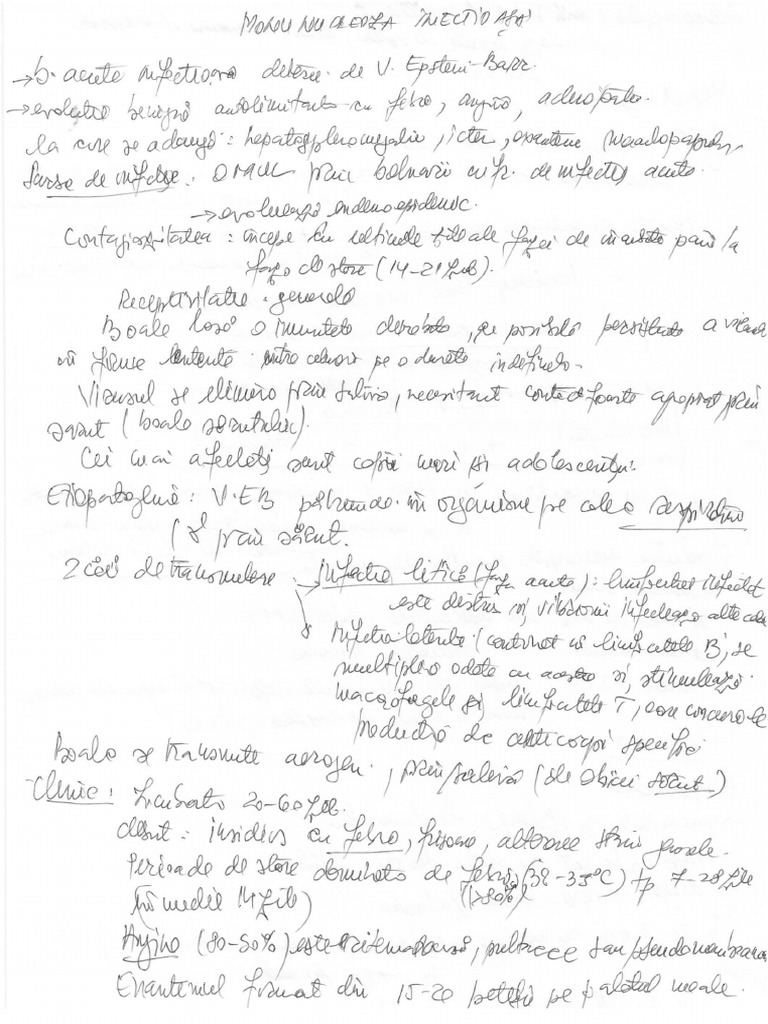 MONONUCLEOZA INFECTIOASĂ
→ b. acută infecțioasă determ. de V. Epstein-Barr.
→ evoluție benignă autolimitantă cu febră, angină, adenopatie.
la care se adaugă: hepatosplenomegalie, icter, exantem maculopapulos.
Sursa de infecție: OMUL prin bolnavii cu f. de infecție acută.
→ evoluează endemoepidemic.
Contagiozitatea: începe cu ultimele zile ale fazei de incubație până la
faza de stare (14-21 zile).
Receptivitatea: generală
Boala lasă o imunitate durabilă, cu posibilă persistența a virusului
în forme latente intra celular pe o durată indefinită.
Virusul se elimină prin salivă, necesitând contact foarte apropiat prin
sărut (boala sărutului).
Cei mai afectați sunt copii mari și adolescenții.
Etiopatogenie: V.EB pătrunde în organism pe cale respiratorie
și prin sărut.
2 căi de transmitere → infecția litică (faza acută): limfocitul infectat
este distrus și, virionii infectează alte celule
infecția latentă (continut în limfocitele B, se
multiplică odată cu acesta și, stimulează
macrofagele și, limfocitele T, care concură la
producția de anticorpi specifici
Boala se transmite aerogen, prin salivă (de obicei sărut)
Clinic: Incubația 20-60 zile.
debut: insidios cu febră, frisoane, alterarea stării generale.
Perioada de stare dominată de febră (>80%) (38-39°C) tp 7-28 zile
(în medie 14 zile)
Angina (80-90%) este eritematoasă, pultacee sau pseudomembranoasă
Enantemul format din 15-20 peteșii pe palatul moale.